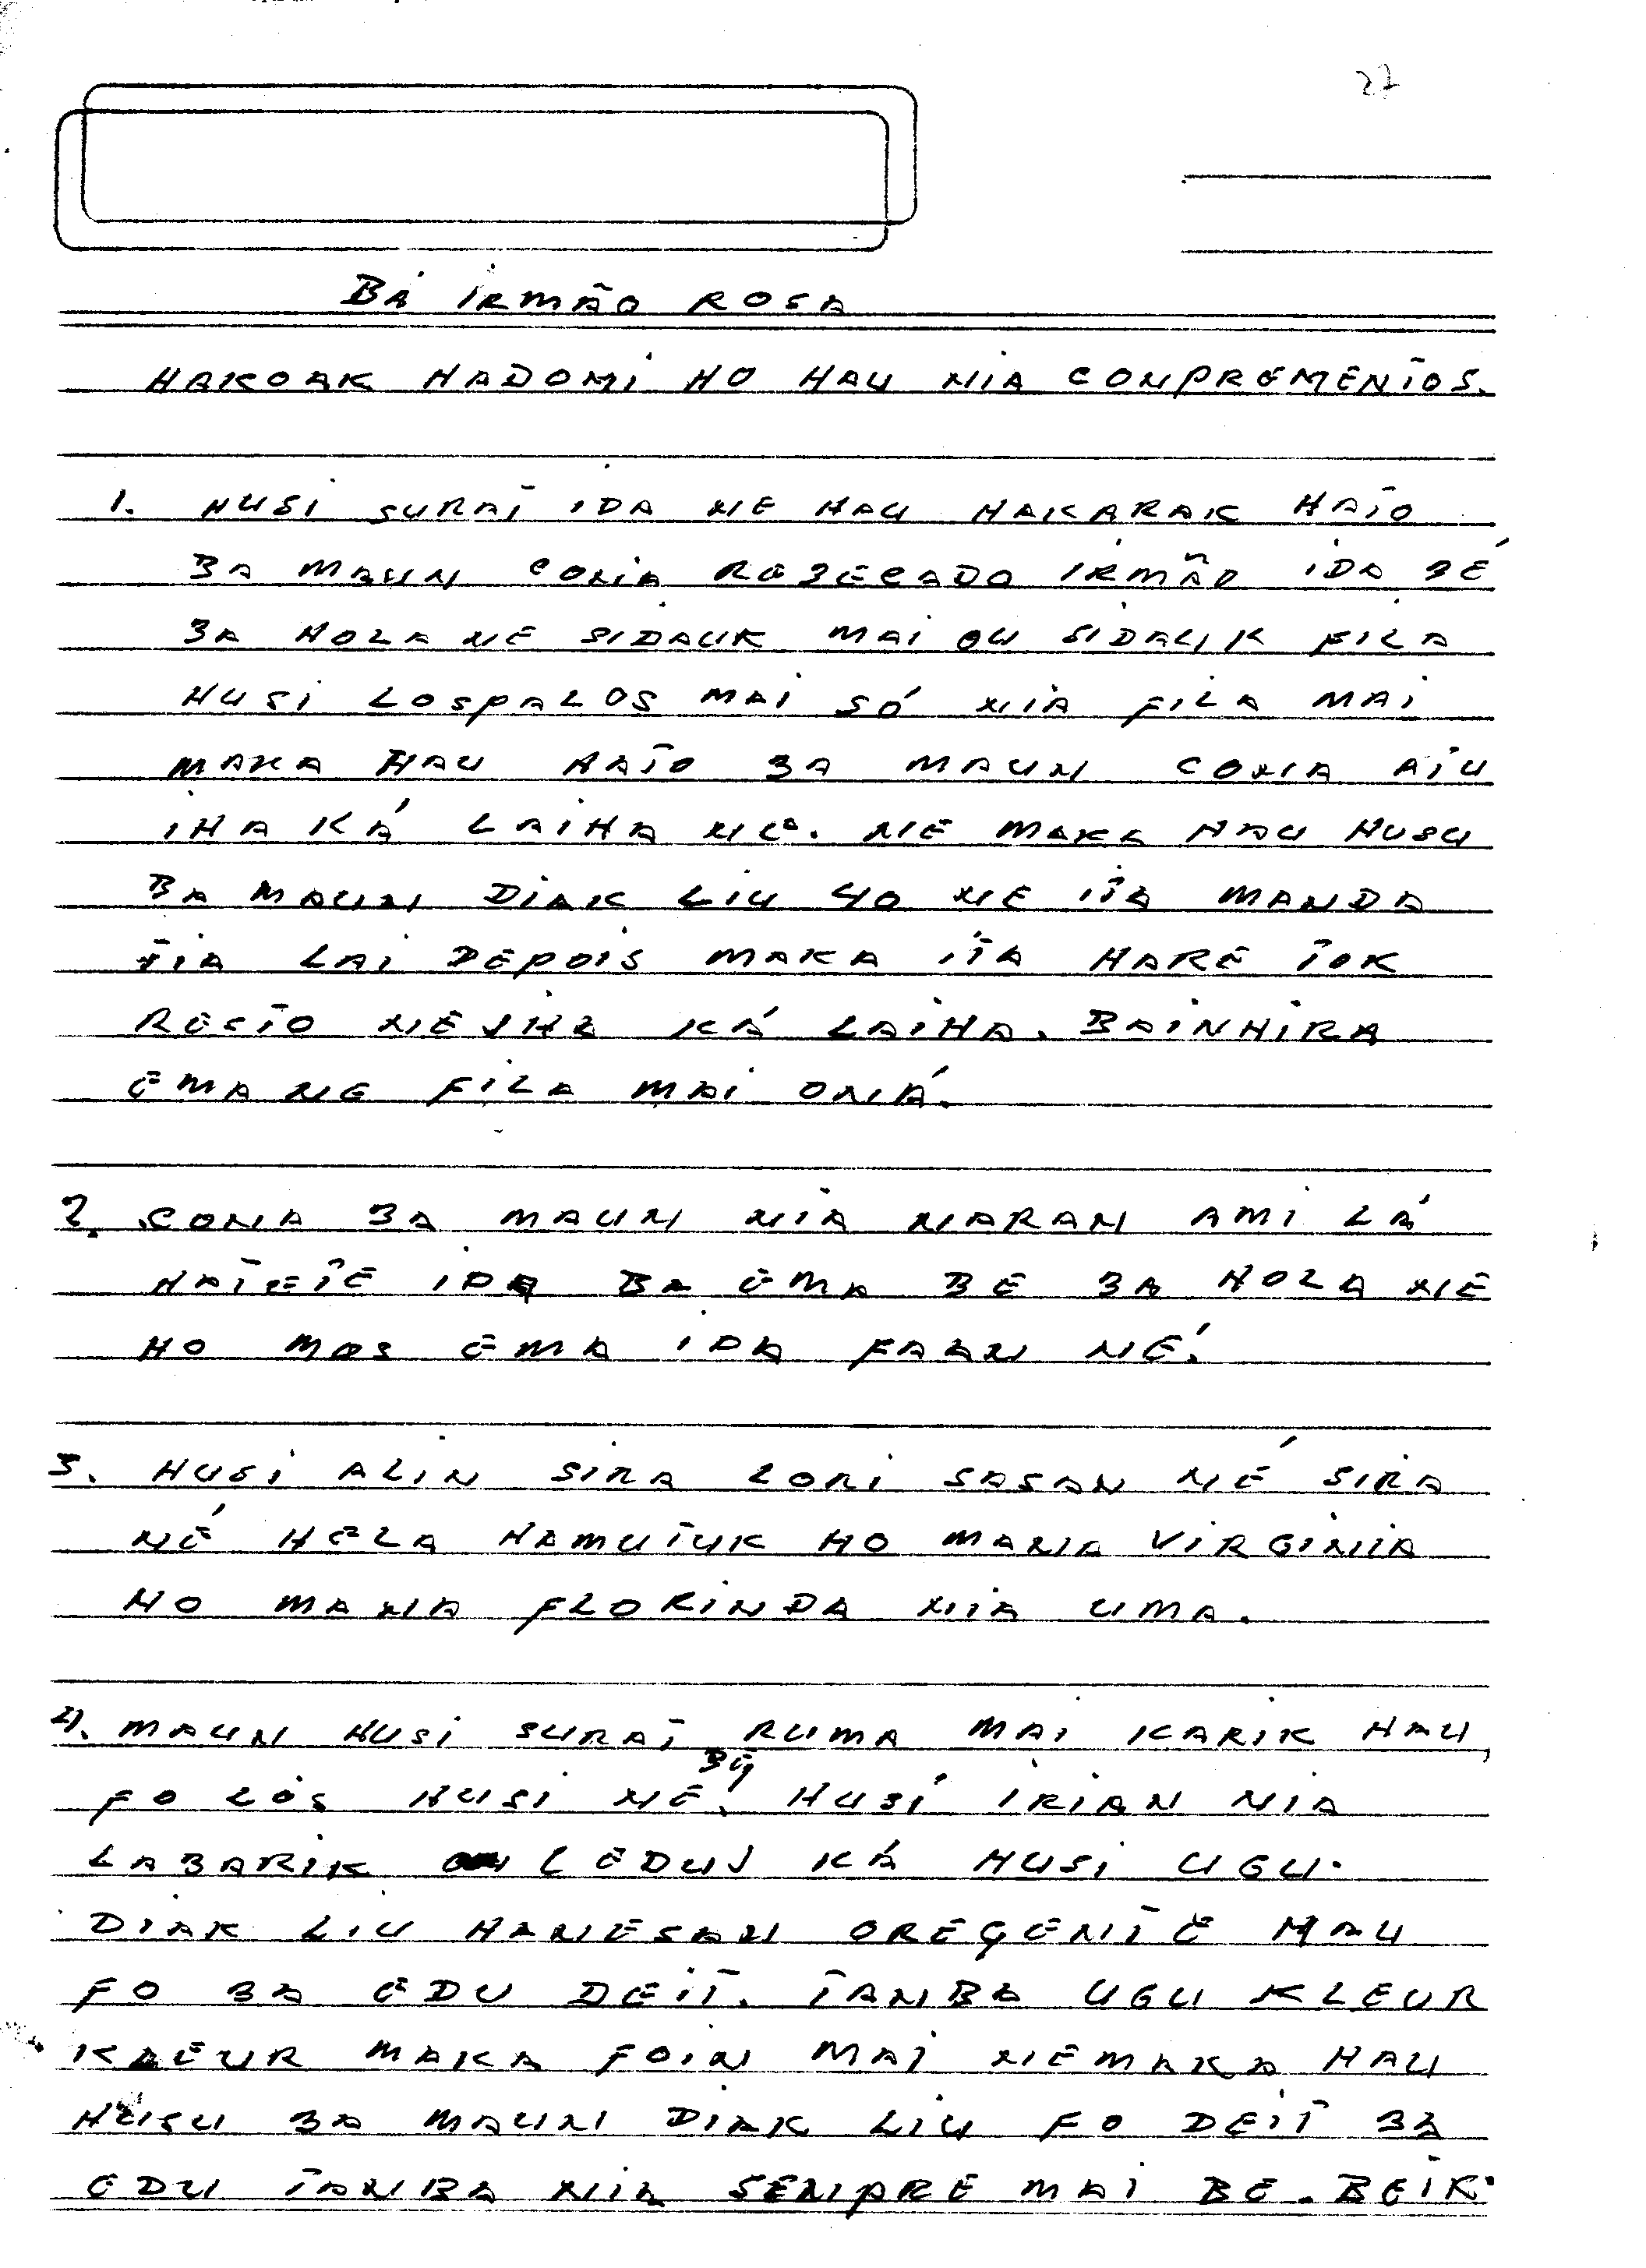 27
BÁ IRMÃO ROSA
HAKOAK HADOMI HO HAU NIA CONPREMENTOS.
1. HUSI SURAT IDA NE HAU HAKARAK HATO
BA MAUN CONA REZECADO IRMÃO IDA BÉ
BA HOLA NE SIDAUK MAI OU SIDAUK FILA
HUSI LOSPALOS MAI SÓ NIA FILA MAI
MAKA HAU HATO BA MAUN CONA ATU
IHA KÁ LAIHA NE. NE MAKA HAU HUSU
BA MAUN DIAK LIU 40 NE ITA MANDA
TIA LAI DEPOIS MAKA ITA HARE TOK
RESTO NE IHA KÁ LAIHA. BAINHIRA
EMA NE FILA MAI ONÁ.
2. CONA BA MAUN NIA NARAN AMI LÁ
HATETE IDA BA EMA BE BA HOLA NE
HO MOS EMA IDA FAAN NÉ.
3. HUSI ALIN SIRA LORI SASAN NÉ SIRA
NÉ HELA HAMUTUK HO MANA VIRGINIA
HO MANA FLORINDA NIA UMA.
4. MAUN HUSI SURAT RUMA MAI KARIK HAU
FO LOS HUSI NE. HUSI IRIAN NIA
LABARIK EDU KÁ HUSI UGU.
DIAK LIU HANESAN OREGENTE HAU
FO BA EDU DEIT. TANBA UGU KLEUR
KLEUR MAKA FOIN MAI NEMAKA HAU
HUSU BA MAUN DIAK LIU FO DEIT BA
EDU TANBA NIA SENPRE MAI BE-BEIK.